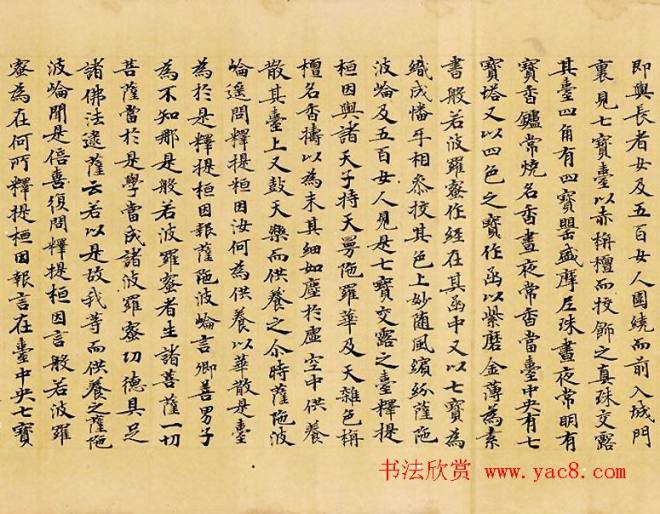 即與長者女及五百女人圍繞而前入城門
裏見七寶臺以赤栴檀而挍飾之真珠交露
其臺四角有四寶罌盛摩尼珠晝夜常明有
寶香鑪常燒名香晝夜常香當臺中央有七
寶塔又以四色之寶作函以紫磨金薄為素
書般若波羅蜜作經在其函中又以七寶為
織成幡手相叅挍其色上妙隨風繽紛薩陁
波崘及五百女人見是七寶交露之臺釋提
桓因與諸天子持天曼陁羅華及天雜色栴
檀名香擣以為末其細如塵於虛空中供養
散其臺上又鼓天樂而供養之尒時薩陁波
崘遙問釋提桓因汝何為供養以華散是臺
為於是釋提桓因報薩陁波崘言卿善男子
為不知那是般若波羅蜜者生諸菩薩一切
菩薩當於是學當成諸波羅蜜功德具足
諸佛法逮薩云若以是故我等而供養之薩陁
波崘聞是倍喜復問釋提桓因言般若波羅
蜜為在何所釋提桓因報言在臺中央七寶
书法欣赏 www.yac8.com